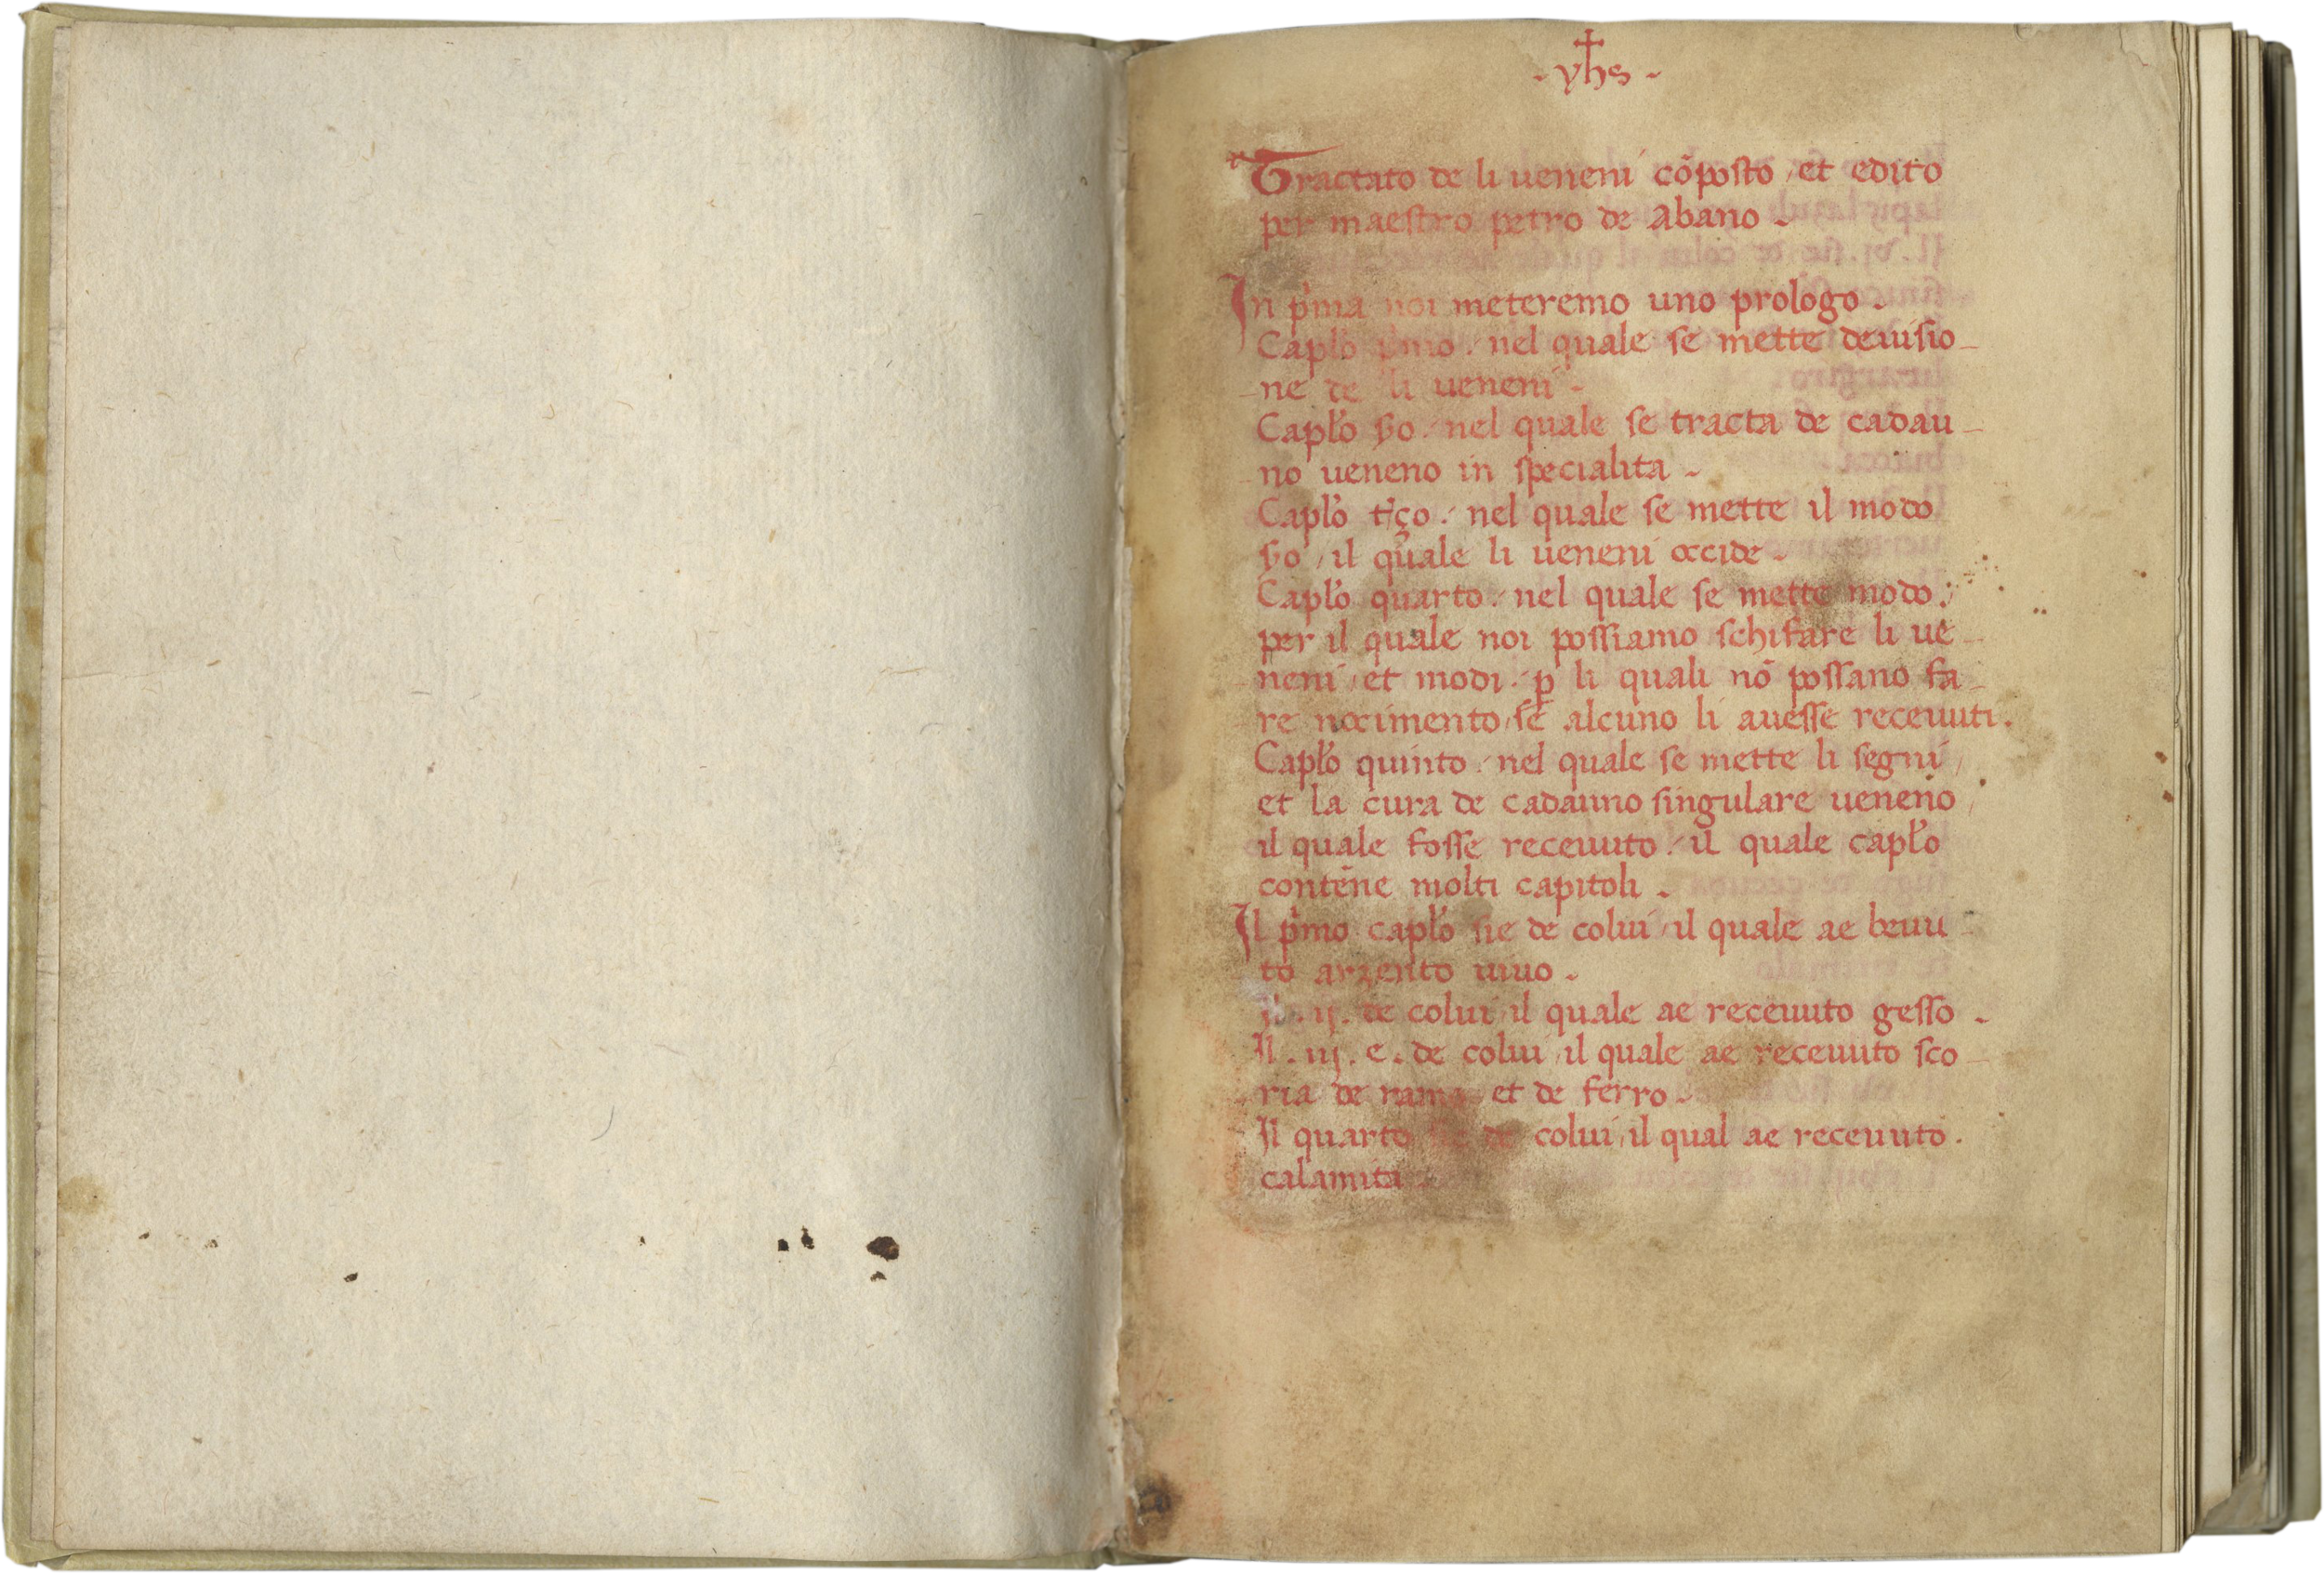 - yhs -
Tractato de li ueneni cõposto / et edito
per maestro petro de Abano -
In p'ma noi meteremo uno prologo -
Caplo p'mo / nel quale se mette deuisio-
-ne de li ueneni -
Caplo s̄do / nel quale se tracta de cadau-
-no ueneno in specialita -
Caplo t'ço / nel quale se mette il modo
s̄do / il quale li ueneni occide -
Caplo quarto / nel quale se mette modo /
per il quale noi possiamo schifare li ue-
-neni / et modi / p̱ li quali nõ possano fa-
-re nocimento / se alcuno li auesse receuuti.
Caplo quinto / nel quale se mette li segni /
et la cura de cadauno singulare ueneno /
il quale fosse receuuto / il quale caplo
contẽne molti capitoli -
Il p'mo caplo sie de colui / il quale ae beuu-
to arzento uiuo -
Il .ij. de colui / il quale ae receuuto gesso -
Il .iij. e. de colui / il quale ae receuuto sco-
-ria de rame et de ferro -
Il quarto sie de colui / il qual ae receuuto.
calamita